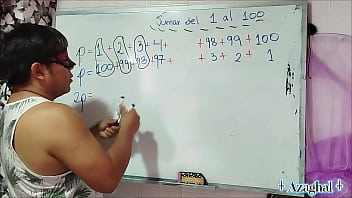 Sumar del 1 al 100
p = 1 + 2 + 3 + 4 + + 98 + 99 + 100
p = 100 + 99 + 98 + 97 + + 3 + 2 + 1
2p =
‡ Azaghal ‡